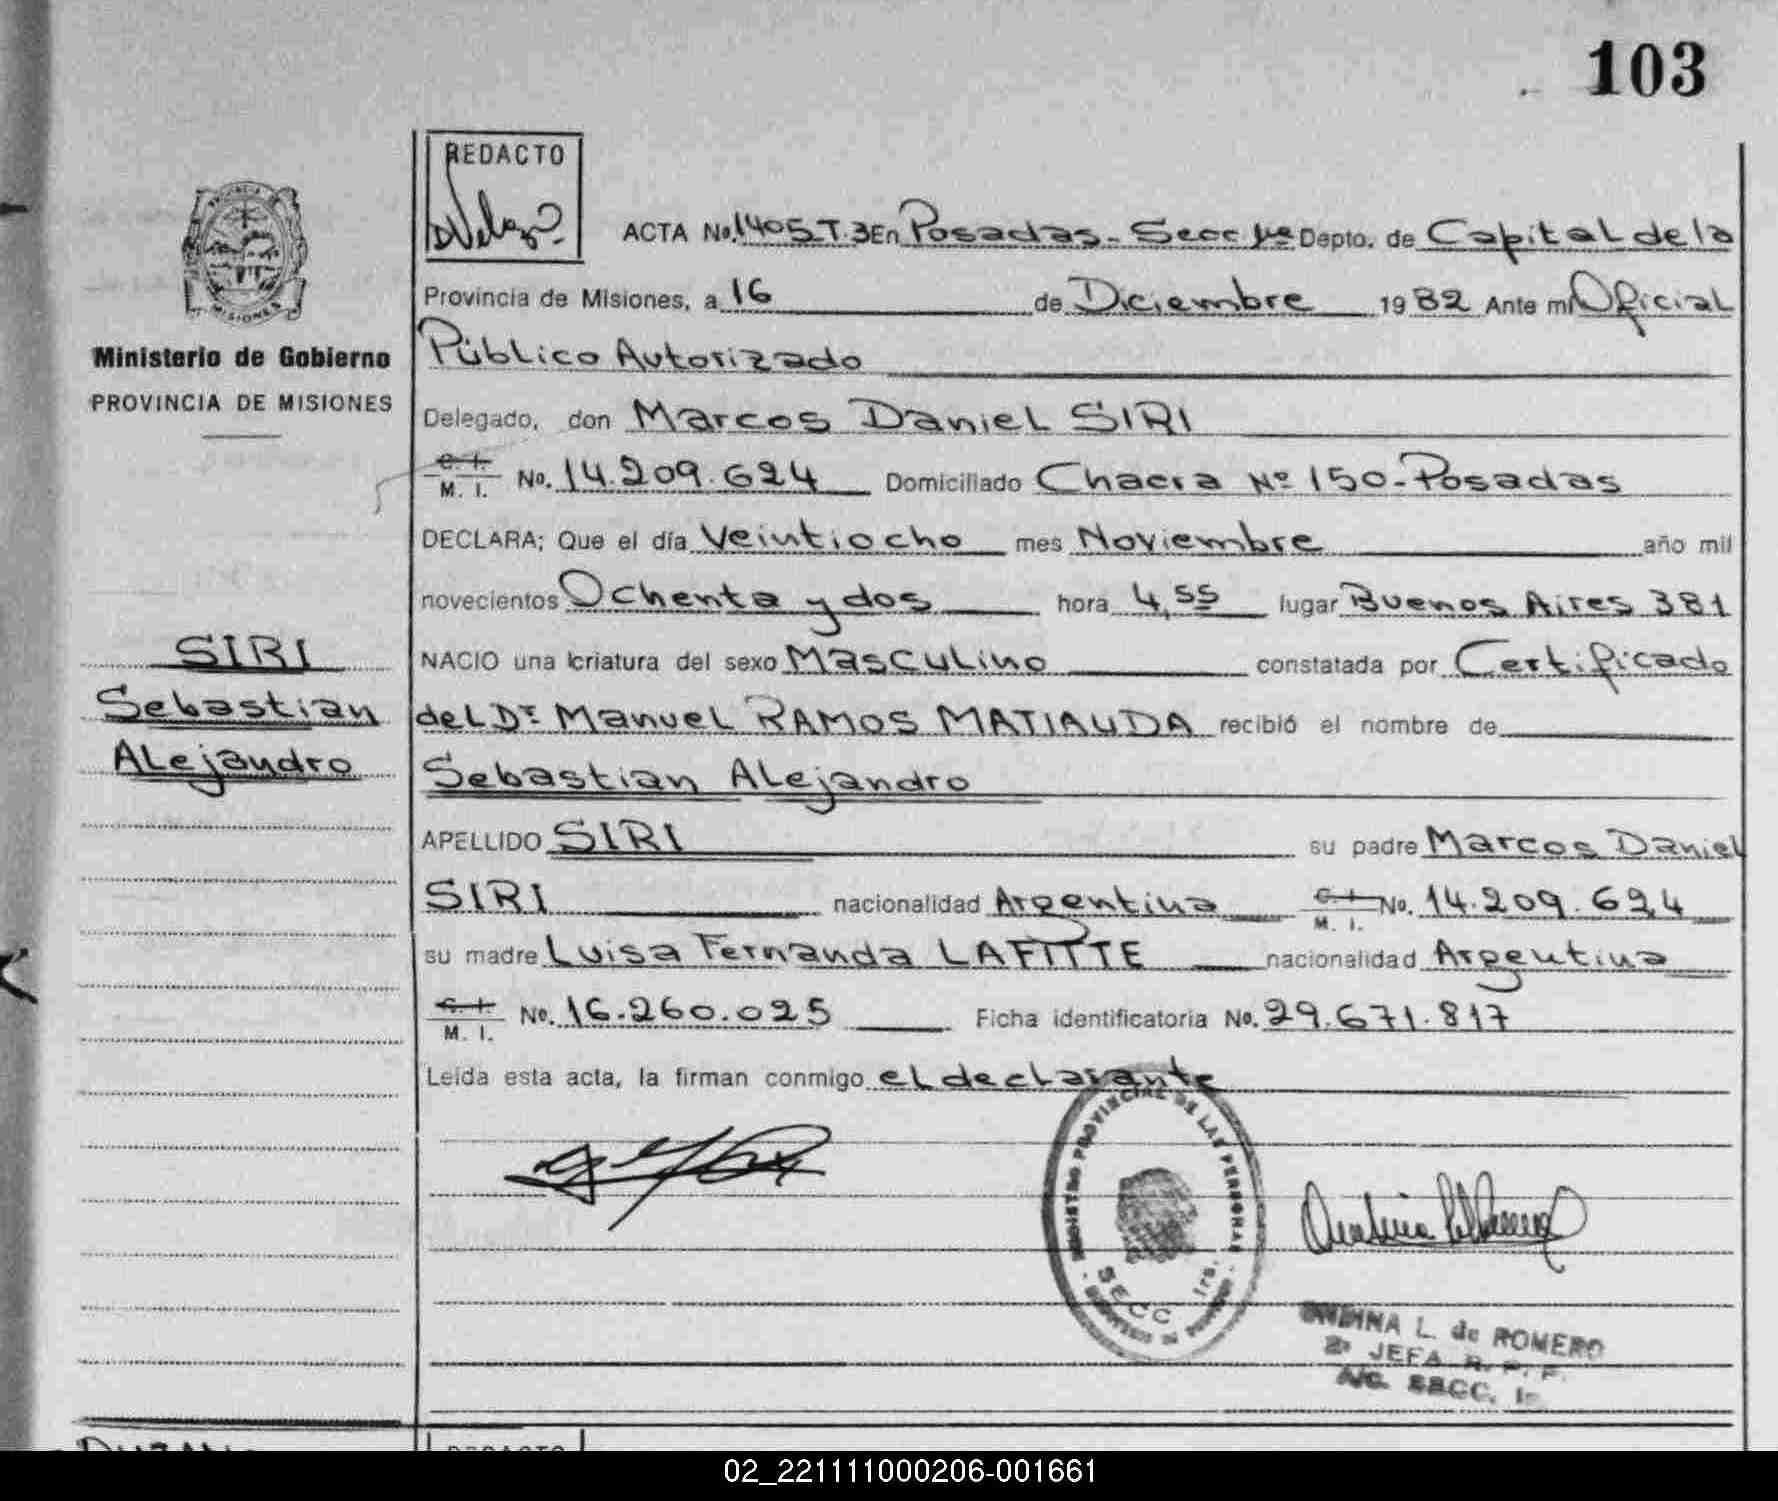 103
REDACTO
ACTA No. 1405 T. 3 En Posadas - Secc 1ra Depto. de Capital de la
Provincia de Misiones, a 16 de Diciembre 1982 Ante mi Oficial
Público Autorizado
Ministerio de Gobierno
PROVINCIA DE MISIONES
Delegado, don Marcos Daniel SIRI
C. I. M. I. No. 14.209.624 Domiciliado Chacra Nº 150 - Posadas
DECLARA; Que el día Veintiocho mes Noviembre año mil
novecientos Ochenta y dos hora 4,55 lugar Buenos Aires 381
NACIO una criatura del sexo Masculino constatada por Certificado
del Dr Manuel RAMOS MATIAUDA recibió el nombre de
Sebastian Alejandro
SIRI
Sebastian
Alejandro
APELLIDO SIRI su padre Marcos Daniel
SIRI nacionalidad Argentina C. I. M. I. No. 14.209.624
su madre Luisa Fernanda LAFITTE nacionalidad Argentina
C. I. M. I. No. 16.260.025 Ficha identificatoria No. 29.671.817
Leída esta acta, la firman conmigo el declarante
REGISTRO PROVINCIAL DE LAS PERSONAS
SECC 1ra.
L. de ROMERO
2ª JEFA R. P. P.
A/C. SECC. 1ª
02_221111000206-001661